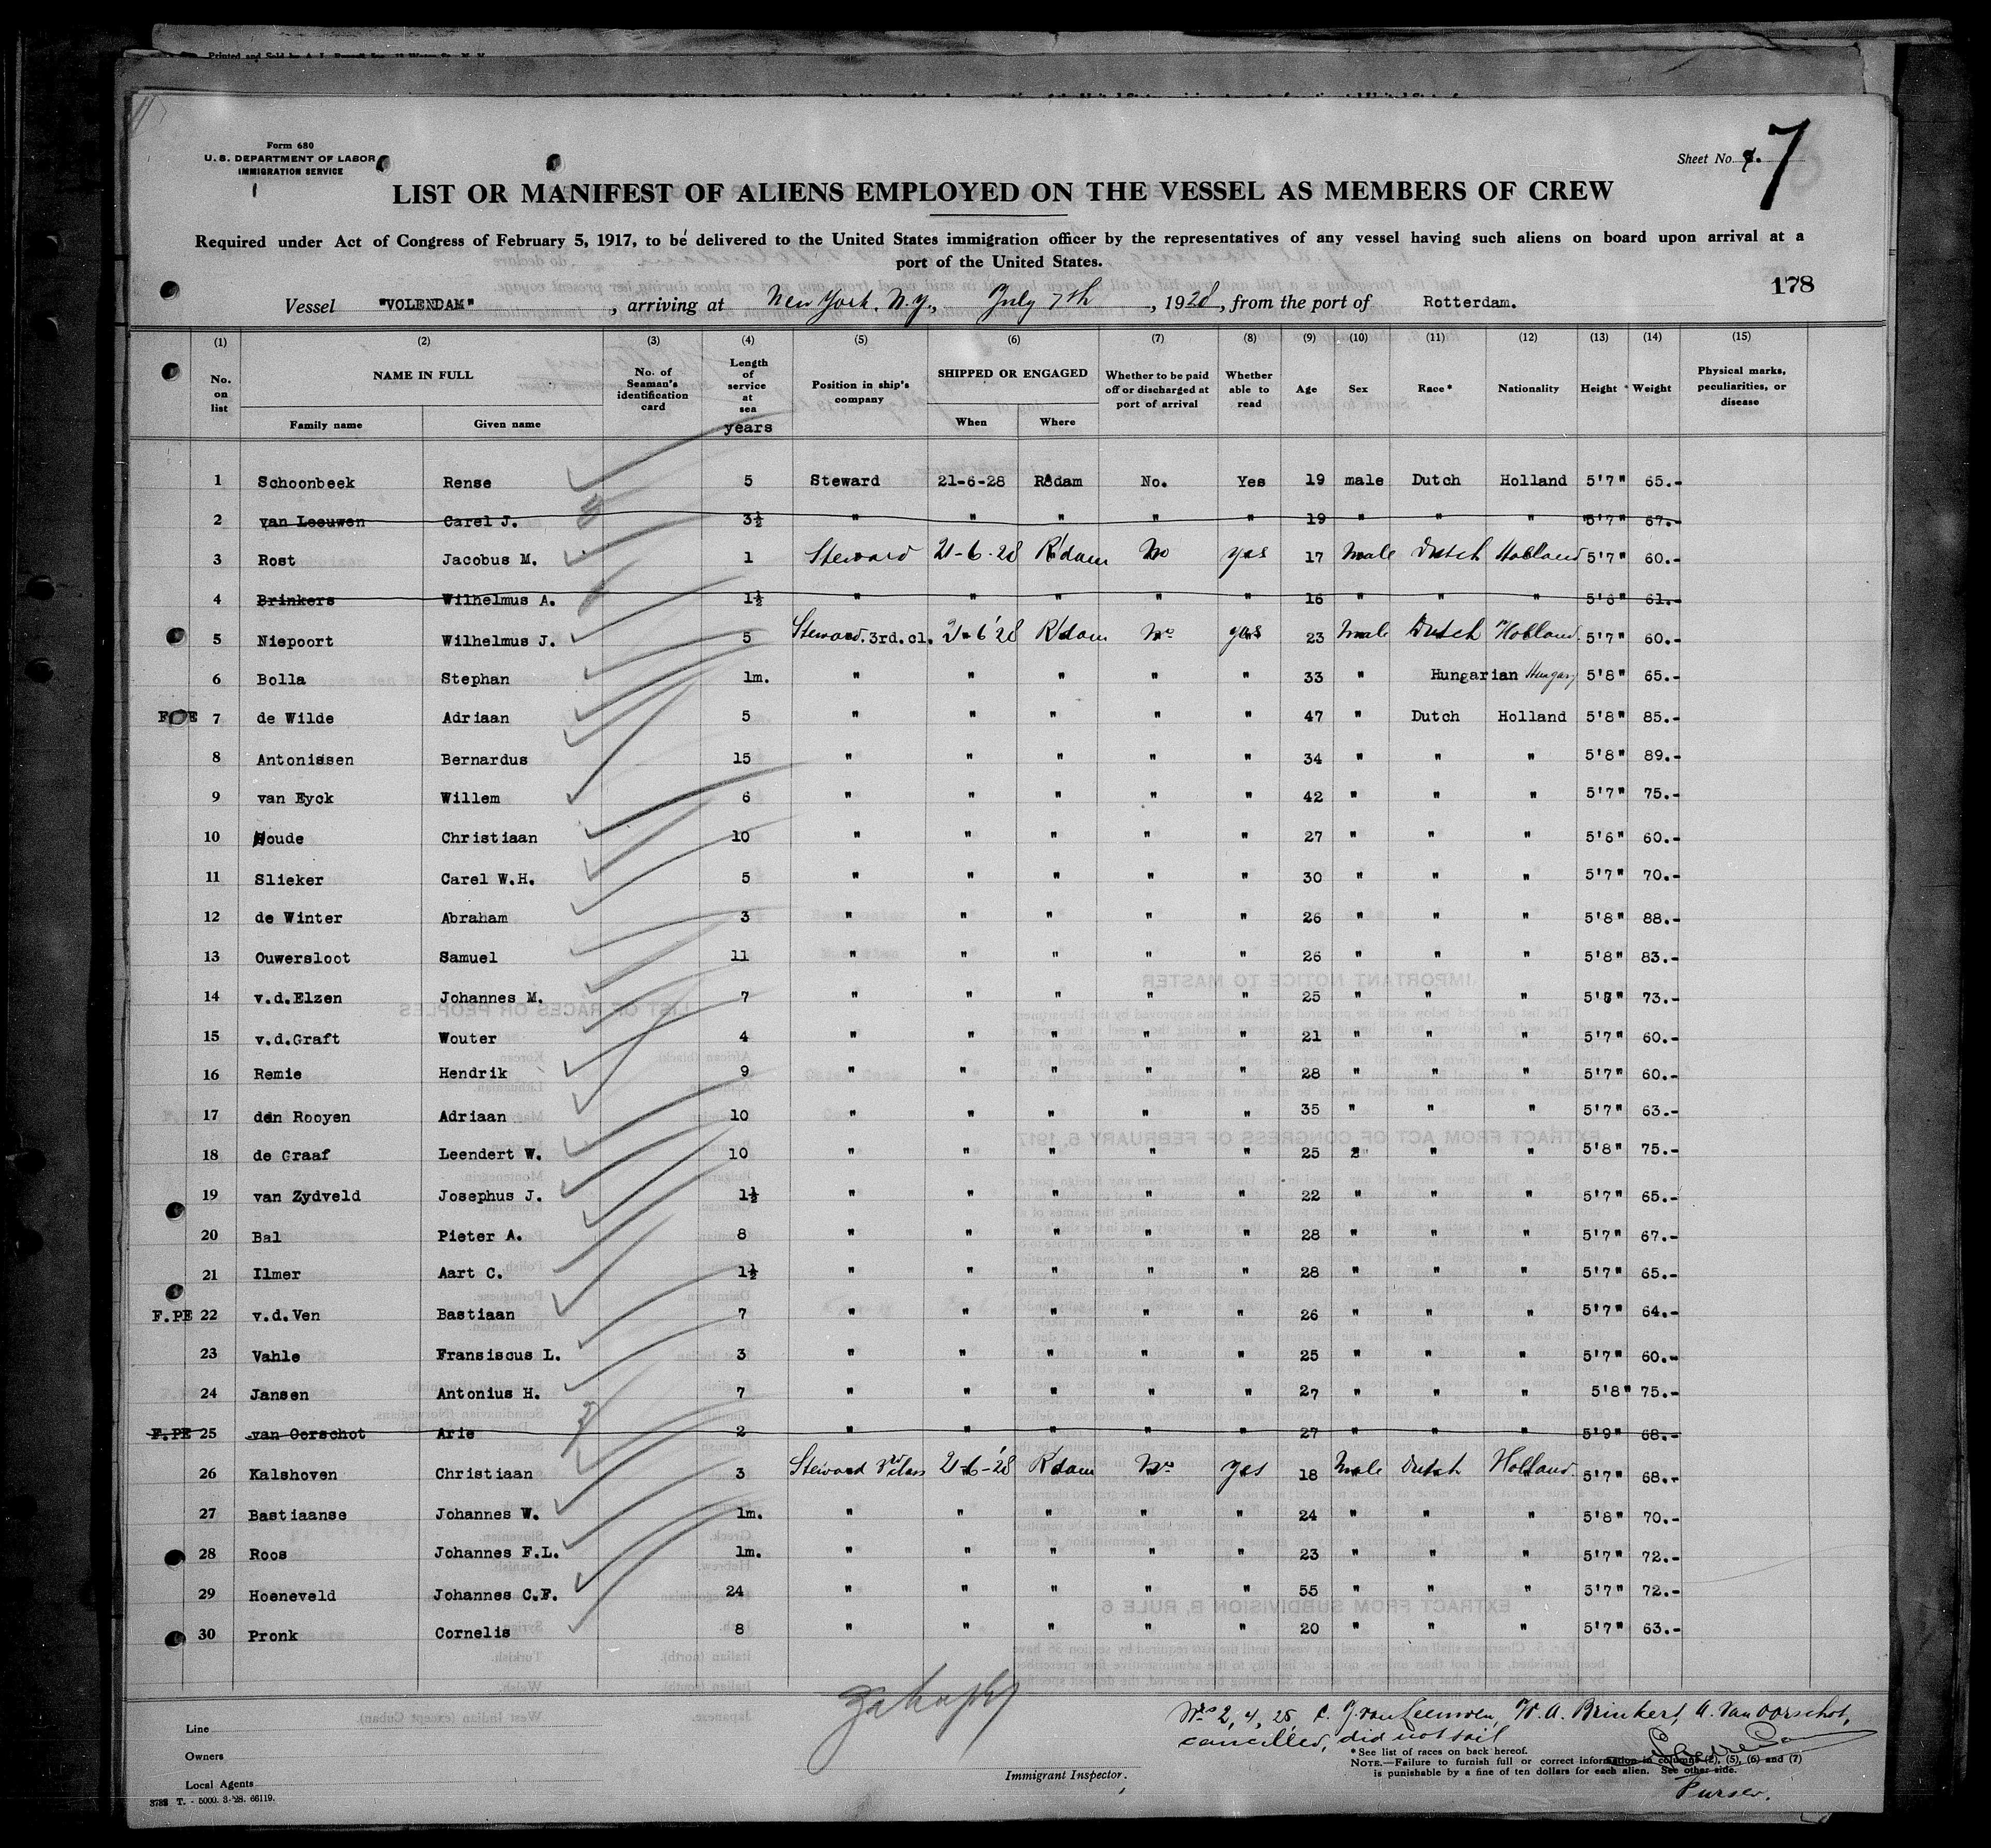 Printed and Sold by
Form 680
U. S. DEPARTMENT OF LABOR
IMMIGRATION SERVICE
Sheet No. 7
LIST OR MANIFEST OF ALIENS EMPLOYED ON THE VESSEL AS MEMBERS OF CREW
Required under Act of Congress of February 5, 1917, to be delivered to the United States immigration officer by the representatives of any vessel having such aliens on board upon arrival at a
port of the United States.
178
Vessel "VOLENDAM", arriving at New York, N.Y., July 7th, 1928, from the port of Rotterdam.
(1) (2) (3) (4) (5) (6) (7) (8) (9) (10) (11) (12) (13) (14) (15)
No. on list NAME IN FULL Family name Given name No. of Seaman's identification card Length of service at sea years Position in ship's company SHIPPED OR ENGAGED When Where Whether to be paid off or discharged at port of arrival Whether able to read Age Sex Race* Nationality Height Weight Physical marks, peculiarities, or disease
1 Schoonbeek Rense 5 Steward 21-6-28 R'dam No. Yes 19 male Dutch Holland 5'7" 65.-
2 van Leeuwen Carel J. 3½ " " " " " 19 " " " 5'7" 67.-
3 Rost Jacobus M. 1 Steward 21-6-28 R'dam No yes 17 Male Dutch Holland 5'7" 60.-
4 Brinkers Wilhelmus A. 1½ " " " " " 16 " " " 5'6" 61.-
5 Niepoort Wilhelmus J. 5 Steward.3rd.cl. 21-6'28 R'dam No yes 23 Male Dutch Holland. 5'7" 60.-
6 Bolla Stephan 1m. " " " " " 33 " Hungarian Hungary 5'8" 65.-
7 de Wilde Adriaan 5 " " " " " 47 " Dutch Holland 5'8" 85.-
8 Antonissen Bernardus 15 " " " " " 34 " " " 5'8" 89.-
9 van Eyck Willem 6 " " " " " 42 " " " 5'7" 75.-
10 Houde Christiaan 10 " " " " " 27 " " " 5'6" 60.-
11 Slieker Carel W.H. 5 " " " " " 30 " " " 5'7" 70.-
12 de Winter Abraham 3 " " " " " 26 " " " 5'8" 88.-
13 Ouwersloot Samuel 11 " " " " " 26 " " " 5'8" 83.-
14 v.d.Elzen Johannes M. 7 " " " " " 25 " " " 73.-
15 v.d.Graft Wouter 4 " " " " " 21 " " " 5'7" 60.-
16 Remie Hendrik 9 " " " " " 28 " " " 5'7" 60.-
17 den Rooyen Adriaan 10 " " " " " 35 " " " 5'7" 63.-
18 de Graaf Leendert W. 10 " " " " " 25 " " " 5'8" 75.-
19 van Zydveld Josephus J. 1½ " " " " " 22 " " " 5'7" 65.-
20 Bal Pieter A. 8 " " " " " 28 " " " 5'7" 67.-
21 Ilmer Aart C. 1½ " " " " " 28 " " " 5'7" 65.-
F.PE 22 v.d.Ven Bastiaan 7 " " " " " 26 " " " 5'7" 64.-
23 Vahle Fransiscus L. 3 " " " " " 25 " " " 5'7" 60.-
24 Jansen Antonius H. 7 " " " " " 27 " " " 5'8" 75.-
F.PE 25 van Oorschot Arie 2 " " " " " 27 " " " 5'9" 68.-
26 Kalshoven Christiaan 3 Steward 21-6-'28 R'dam No yes 18 Male Dutch Holland. 5'7" 68.-
27 Bastiaanse Johannes W. 1m. " " " " " 24 " " " 5'8" 70.-
28 Roos Johannes F.L. 1m. " " " " " 23 " " " 5'7" 72.-
29 Hoeneveld Johannes C.F. 24 " " " " " 55 " " " 5'7" 72.-
30 Pronk Cornelis 8 " " " " " 20 " " " 5'7" 63.-
Nrs 2, 4, 25, C. J. van Leeuwen, W. A. Brinkers, A. van Oorschot,
cancelled, did not sail
Line
Owners
Local Agents
Immigrant Inspector.
*See list of races on back hereof.
NOTE.—Failure to furnish full or correct information in columns (2), (5), (6) and (7)
is punishable by a fine of ten dollars for each alien. See other side.
Purser.
3782 T. - 5000. 3-'28. 66119.